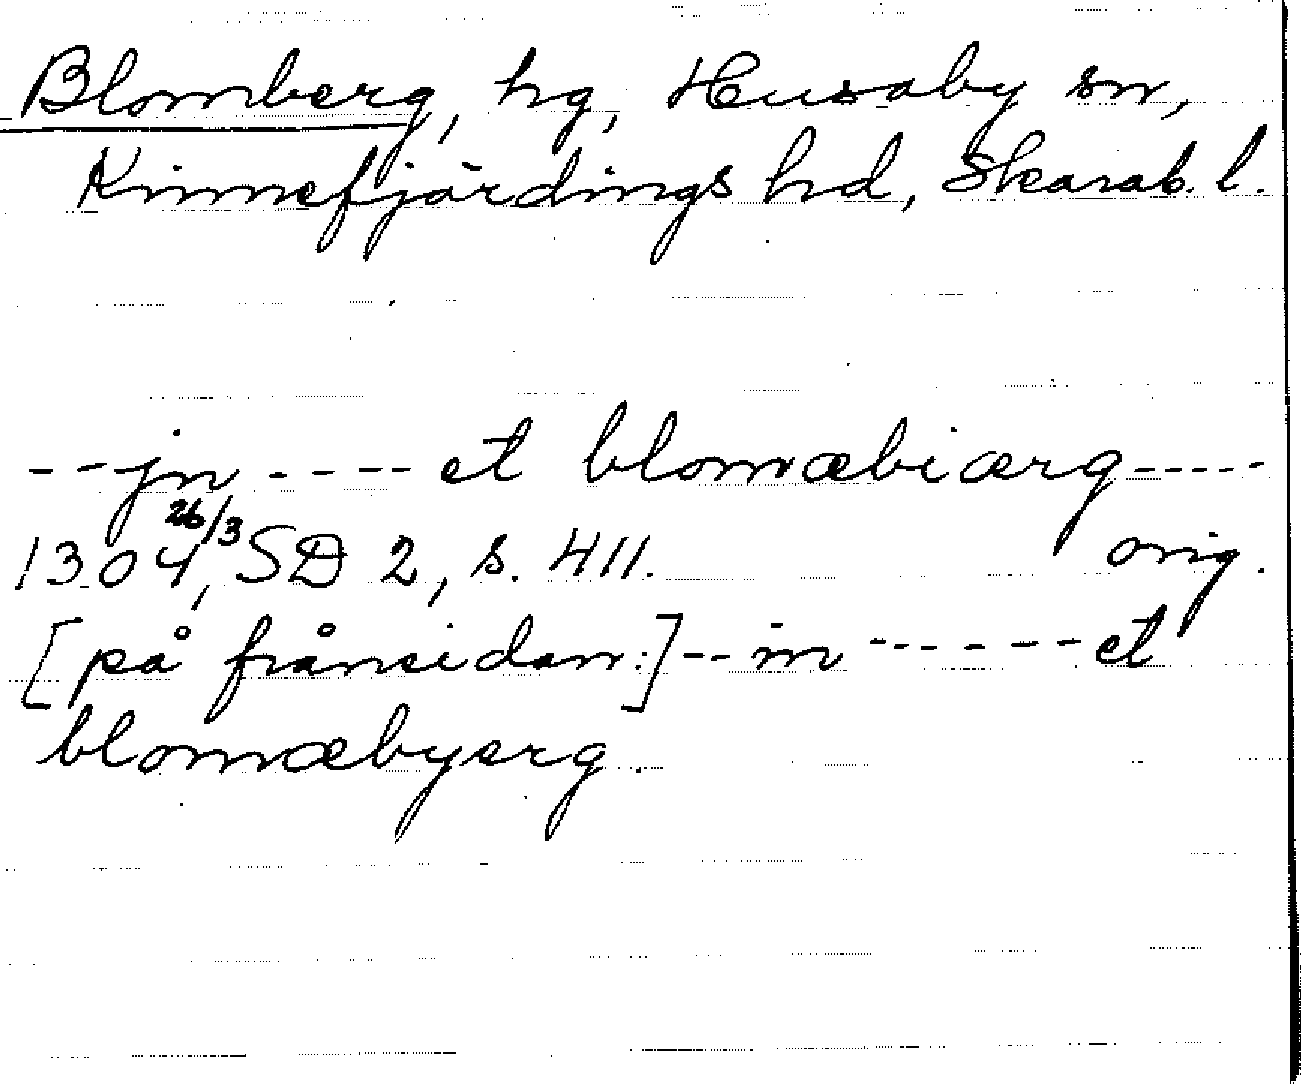 Blomberg, hg, Husaby sn,
Kinnefjärdings hd, Skarab. l.
-- jn ---- et blomæbiærg -----
1304 26/3, SD 2, s. 411. orig.
[på frånsidan:] -- in ------ et
blomæbyerg.